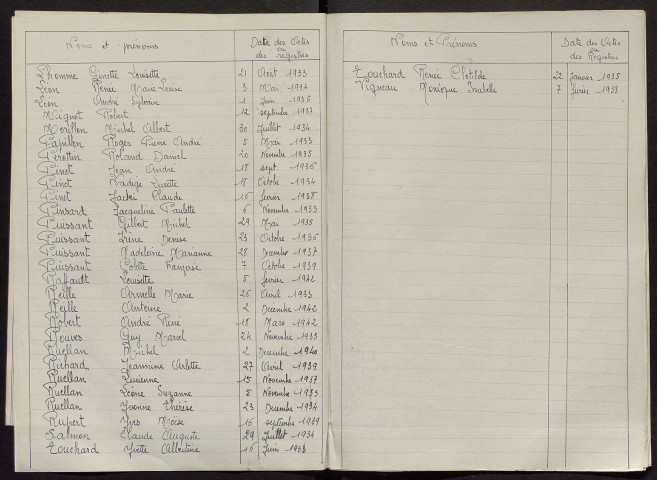 Noms et prénoms
Date des Actes
ou
des registres
Lhomme Ginette Louisette 21 Août 1933
Léon Renée Marie Louise 3 Mai 1934
Léon André Sylvain 1 Juin 1936
Miquot Robert 12 septembre 1937
Morillon Michel Albert 30 Juillet 1934
Papillon Roger Pierre André 5 Mai 1933
Perottin Roland Daniel 20 Novembre 1935
Pinet Jean André 18 sept. 1936
Pinet Nadège Lucette 18 Octobre 1934
Pinet Jacki Claude 16 février 1938
Pinsard Jacqueline Paulette 6 Novembre 1933
Puissant Gilbert Michel 29 Mai 1935
Puissant Irène Denise 23 Octobre 1936
Puissant Madeleine Marianne 28 Décembre 1937
Puissant Colette Françoise 7 Octobre 1939
Raffault Louisette 5 février 1942
Reille Armelle Marie 26 Avril 1933
Reille Antoine 2 Décembre 1942
Robert André René 18 Mars 1942
Rouves Guy Marcel 24 Novembre 1933
Ruellan Michel 2 Décembre 1940
Richard Jeannine Arlette 27 Avril 1939
Ruellan Lucienne 15 Novembre 1937
Ruellan Léone Suzanne 5 Novembre 1933
Ruellan Yvonne thérèse 23 Décembre 1934
Rupert Yves Moïse 16 septembre 1939
Salmon Claude Auguste 29 Juillet 1934
Touchard Yvette Albertine 16 Juin 1938
Noms et Prénoms
Date des Actes
ou
des Registres
Touchard Renée Clotilde 22 Janvier 1935
Vigneau Monique Isabelle 7 février 1933